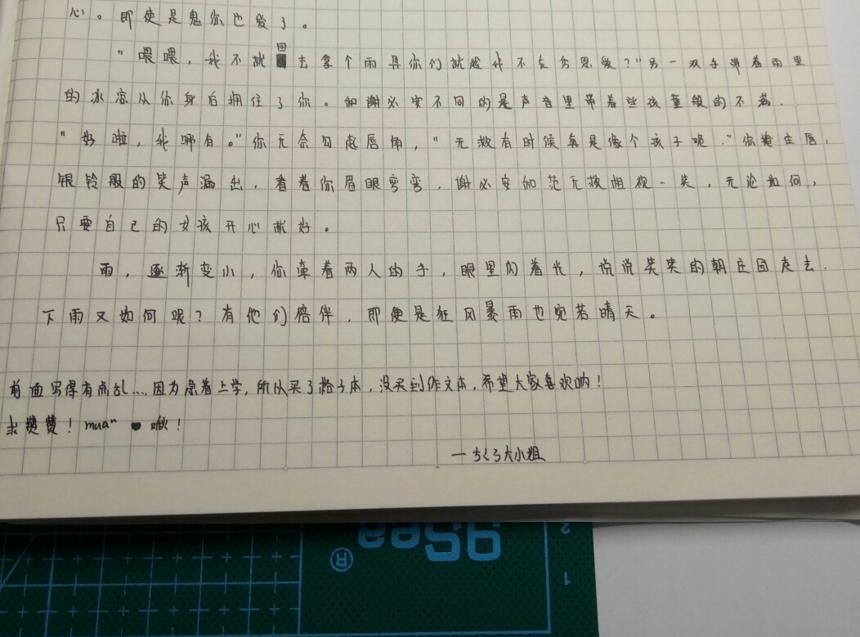 心。即使是鬼你也爱了。
“喂喂，我不就回去拿个雨具你们就趁我不在秀恩爱？”另一双手带着雨里
的水密从你身后拥住了你。和谢必安不同的是声音里带着些孩童般的不羁.
“好啦，我哪有。”你无奈勾起唇角，“无救有时候真是像个孩子呢.”你掩住唇，
银铃般的笑声漏出，看着你眉眼弯弯，谢必安和范无救相视一笑，无论如何，
只要自己的女孩开心就好。
雨，逐渐变小，你牵着两人的手，眼里闪着光，说说笑笑的朝庄园走去.
下雨又如何呢？有他们陪伴，即便是狂风暴雨也宛若晴天。
前面写得有点乱....因为急着上学，所以买了格子本，没买到作文本，希望大家喜欢哟！
求赞赞！mua~ 啾！
大小姐
gsea
®
2
1